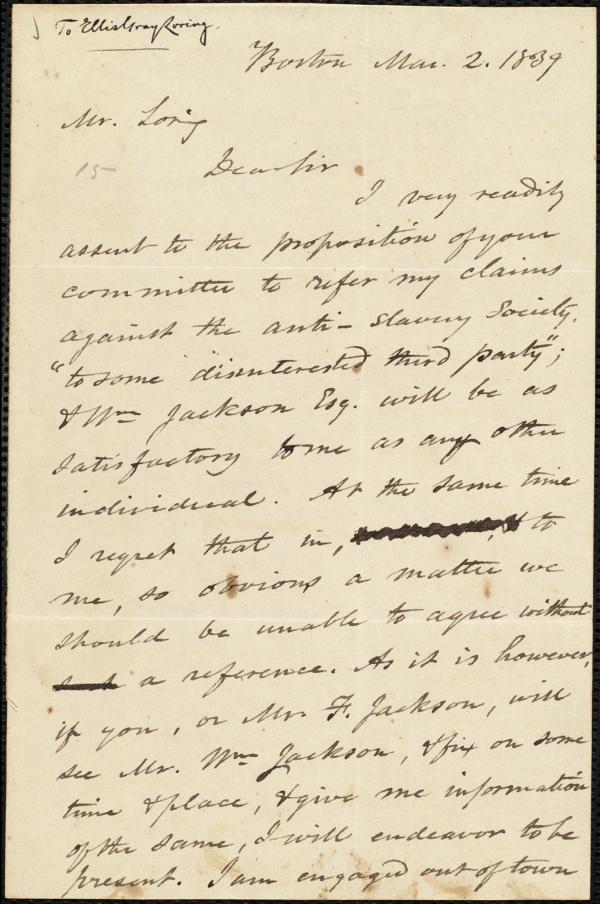 To Ellis Gray Loring.
Boston Mar. 2. 1839
Mr. Loring
15
Dear Sir
I very readily
assent to the proposition of your
committee to refer my claims
against the anti-Slavery Society.
"to some disinterested third party";
& Wm Jackson Esq. will be as
satisfactory to me as any other
individual. At the same time
I regret that in, to
me, so obvious a matter we
should be unable to agree without
a reference. As it is however,
if you, or Mr. F. Jackson, will
see Mr. Wm Jackson, & fix on some
time & place, & give me information
of the same, I will endeavor to be
present. I am engaged out of town